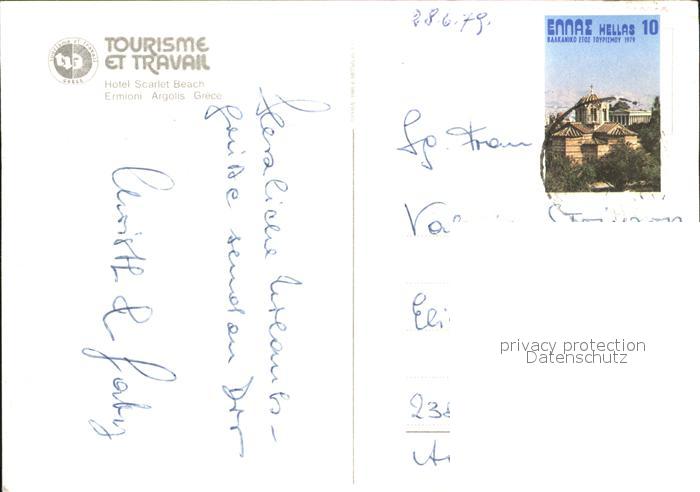 TOURISME
ET TRAVAIL
Hotel Scarlet Beach
Ermioni Argolis Grèce
28.6.79.
ΕΛΛΑΣ HELLAS 10
ΒΑΛΚΑΝΙΚΟ ΕΤΟΣ ΤΟΥΡΙΣΜΟΥ 1979
Herzliche Urlaubs-
grüße senden Dir
Christl & Gaby
Sg. Frau
Eli
238
privacy protection
Datenschutz